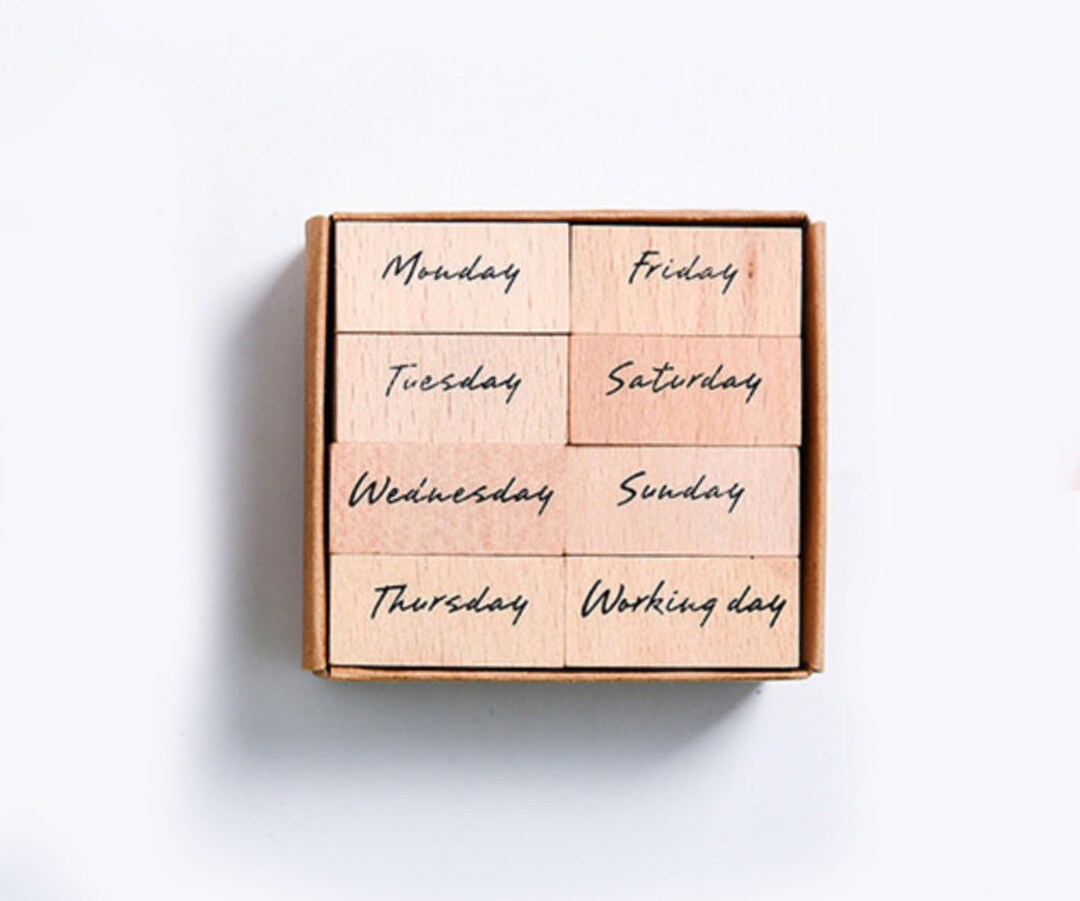 Monday
Tuesday
Wednesday
Thursday
Friday
Saturday
Sunday
Working day